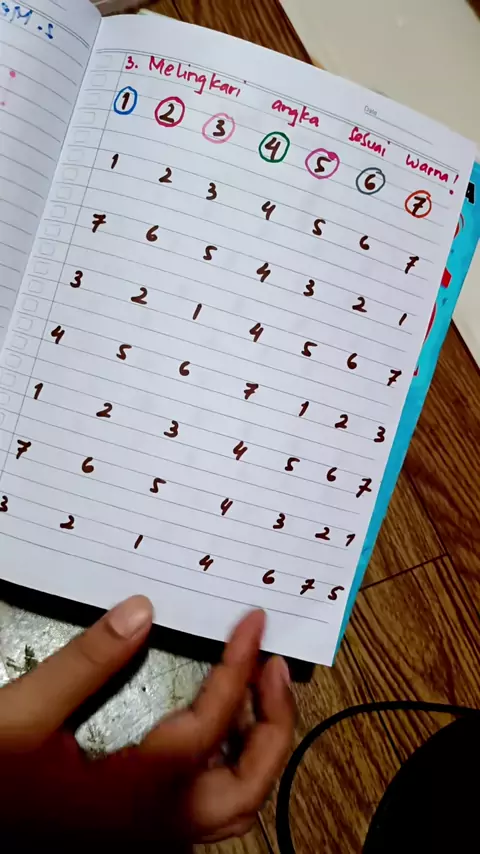 3. Melingkari angka sesuai warna!
Date
1 2 3 4 5 6 7
1 2 3 4 5 6 7
7 6 5 4 3 2 1
3 2 1 4 5 6 7
4 5 6 7 1 2 3
1 2 3 4 5 6 7
7 6 5 4 3 2 1
3 2 1 4 6 7 5